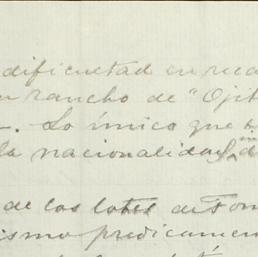 dificultad en
rancho de "Ojit
. Lo único que
la nacionalidad
de los lotes de Tom
ismo predicamen